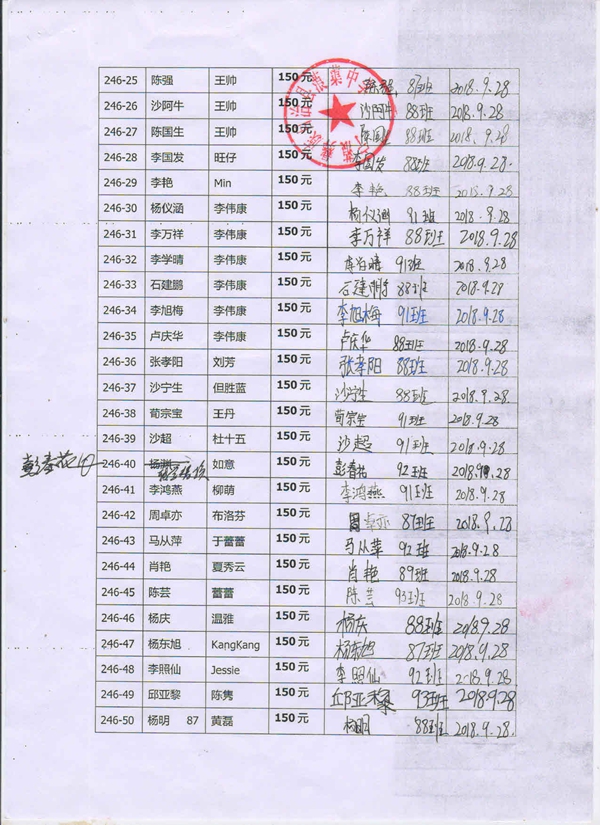 246-25 陈强 王帅 150元 陈强 87班 2018.9.28
246-26 沙阿牛 王帅 150元 沙阿牛 88班 2018.9.28
246-27 陈国生 王帅 150元 陈国生 88班 2018.9.28
246-28 李国发 旺仔 150元 李国发 88班 2018.9.28.
246-29 李艳 Min 150元 李艳 88班 2018.9.28
246-30 杨仪涵 李伟康 150元 杨仪涵 91班 2018.9.28
246-31 李万祥 李伟康 150元 李万祥 88班 2018.9.28
246-32 李学晴 李伟康 150元 李学晴 91班 2018.9.28
246-33 石建鹏 李伟康 150元 石建鹏 88班 2018.9.28
246-34 李旭梅 李伟康 150元 李旭梅 91班 2018.9.28
246-35 卢庆华 李伟康 150元 卢庆华 88班 2018.9.28
246-36 张孝阳 刘芳 150元 张孝阳 88班 2018.9.28
246-37 沙宁生 但胜蓝 150元 沙宁生 88班 2018.9.28
246-38 荀宗宝 王丹 150元 荀宗宝 91班 2018.9.28
246-39 沙超 杜十五 150元 沙超 91班 2018.9.28
246-40 如意 150元 92班
246-41 李鸿燕 柳萌 150元 李鸿燕 91班 2018.9.28
246-42 周卓亦 布洛芬 150元 周卓亦 87班 2018.9.28
246-43 马从萍 于蕾蕾 150元 马从萍 92班 2018.9.28
246-44 肖艳 夏秀云 150元 肖艳 89班 2018.9.28
246-45 陈芸 蕾蕾 150元 陈芸 93班 2018.9.28
246-46 杨庆 温雅 150元 杨庆 88班 2018.9.28
246-47 杨东旭 KangKang 150元 杨东旭 87班 2018.9.28
246-48 李照仙 Jessie 150元 李照仙 92班 2-18.9.28.
246-49 邱亚黎 陈隽 150元 邱亚黎 93班 2018.9.28
246-50 杨明 87 黄磊 150元 杨明 88班 2018.9.28